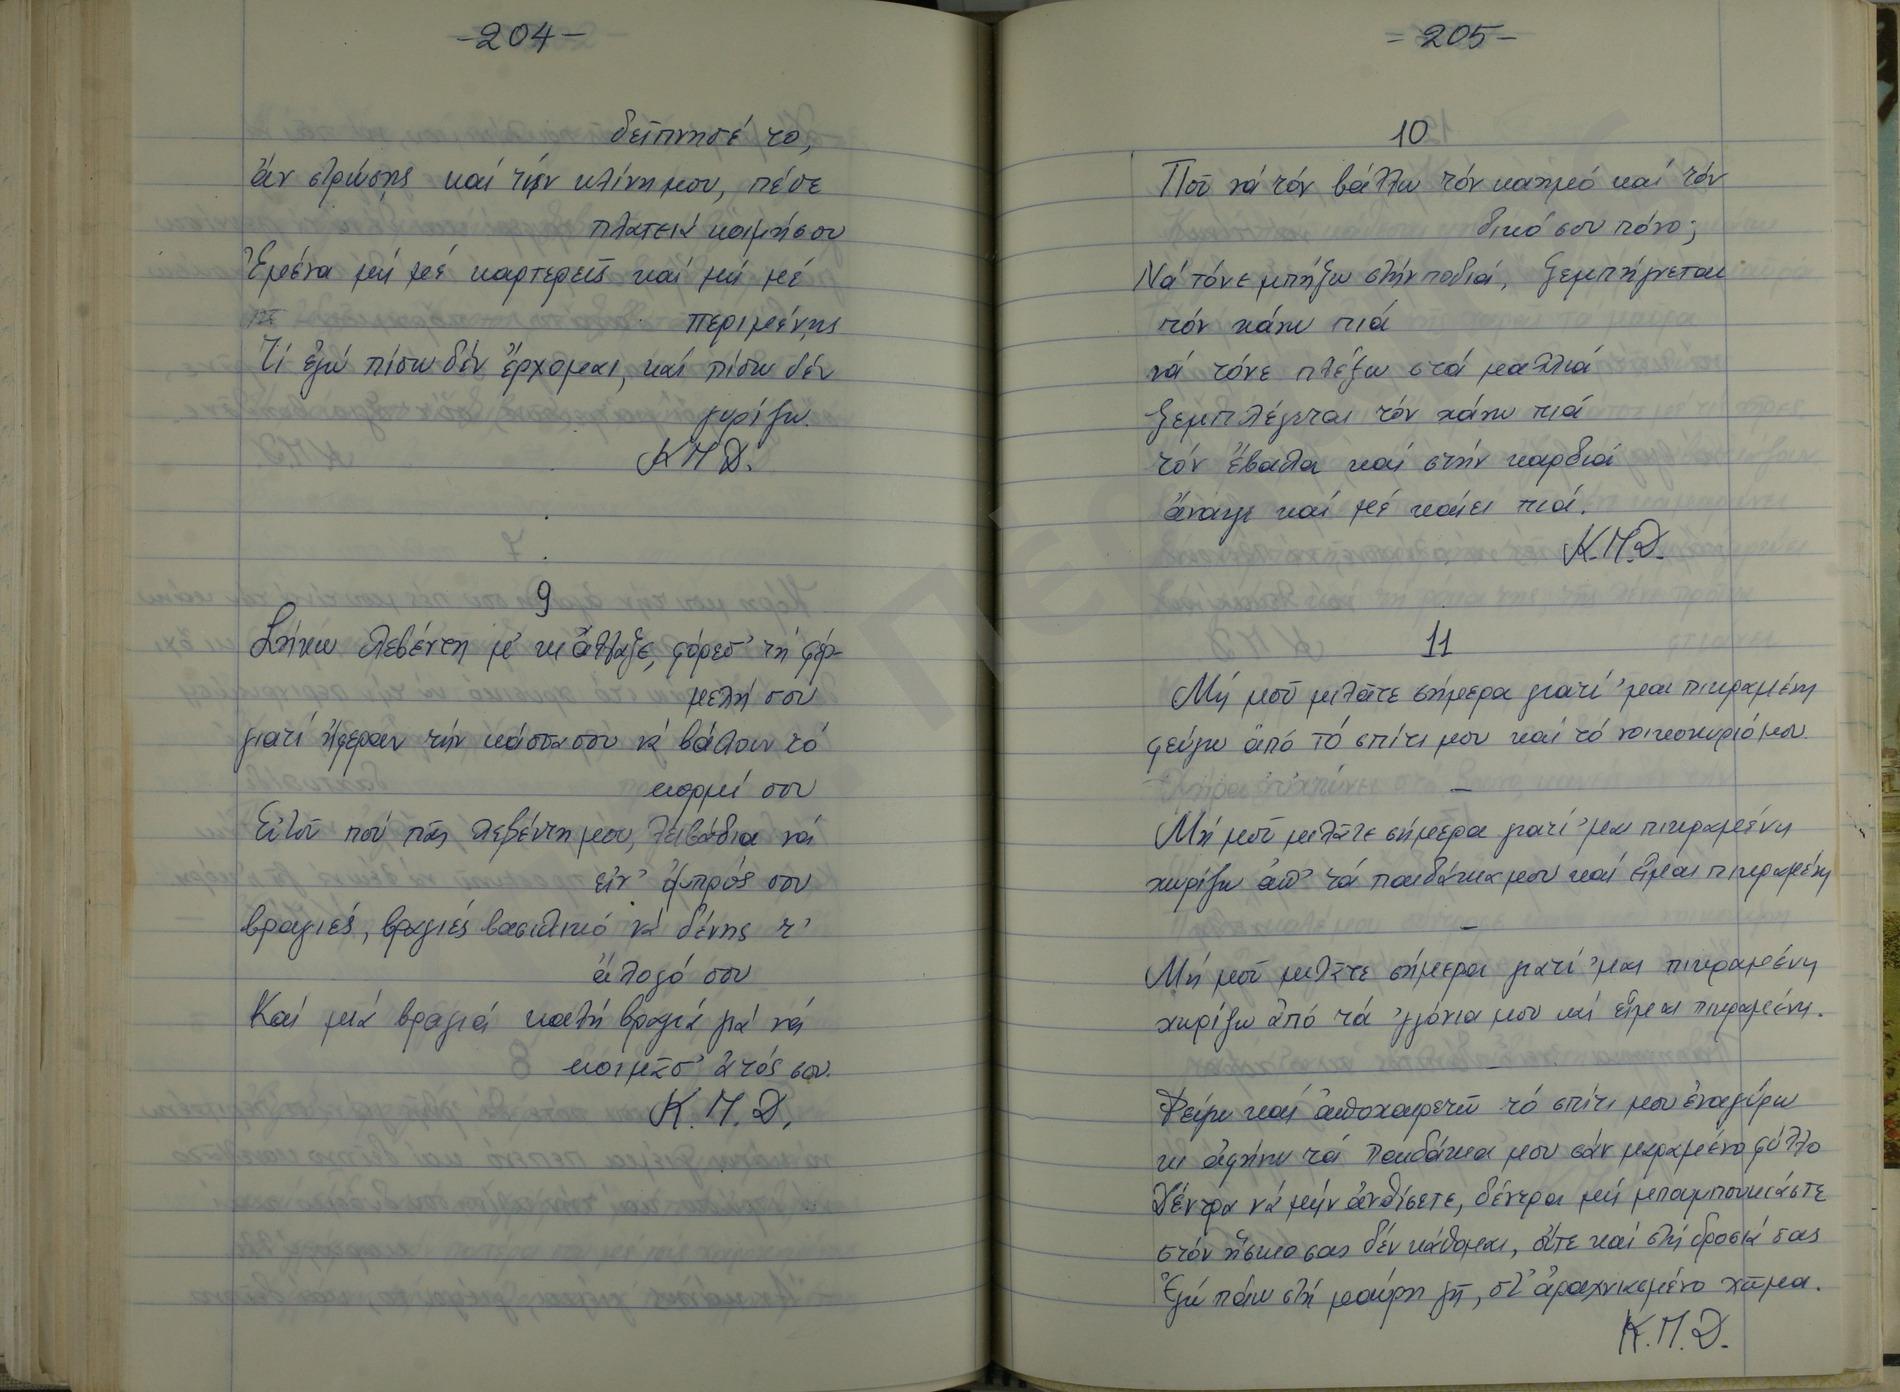 -204-
δεῖπνησέ το,
ἄν στρώσης καί τήν κλίνη μου, πέσε
πλατειά κοιμήσου
Ἐμένα μή μέ καρτερεῖς καί μή μέ
περιμένης
Τί ἐγώ πίσω δέν ἔρχομαι, καί πίσω δέν
γυρίζω.
Κ.Μ.Δ.
9
Σήκω λεβέντη μ' κι ἄλλαξε, φόρεσ' τή φέρ-
μελή σου
γιατί ἤφεραν τήν κάσσα σου νά βάλουν τό
κορμί σου
Εὐτοῦ πού πᾶς λεβέντη μου, λειβάδια νά
εἶν' ἐμπρός σου
βραγιές, βραγιές βασιλικό νά δένης τ'
ἄλογό σου
Καί μιά βραγιά καλή βραγιά γιά νά
κοιμᾶσ' ἀτός σου.
Κ.Μ.Δ.
= 205-
10
Ποῦ νά τόν βάλλω τόν καημό καί τόν
δικό σου πόνο;
Νά τόνε μπήξω στήν ποδιά, ξεμπήγνεται
τόν χάνω πιά
νά τόνε πλέξω στά μαλλιά
ξεμπλέγεται τόν χάνω πιά
τόν ἔβαλα καί στήν καρδιά
ἄναψε καί μέ καίει πιά.
Κ.Μ.Δ.
11
Μή μοῦ μιλᾶτε σήμερα γιατί 'μαι πικραμένη
φεύγω ἀπό τό σπίτι μου καί τό νοικοκυριό μου.
Μή μοῦ μιλᾶτε σήμερα γιατί 'μαι πικραμένη
χωρίζω ἀπ' τά παιδάκια μου καί εἶμαι πικραμένη
Μή μοῦ μιλᾶτε σήμερα γιατί 'μαι πικραμένη
χωρίζω ἀπό τά 'γγόνια μου καί εἶμαι πικραμένη.
Φεύγω καί ἀποχαιρετῶ τό σπίτι μου ἐναγύρω
κι ἀφήνω τά παιδάκια μου σάν μαραμένο φύλλο
Δέντρα νά μήν ἀνθίσετε, δέντρα μή μπαμπουκιάστε
στόν ἤσκιο σας δέν κάθομαι, οὔτε καί στή δροσιά σας
Ἐγώ πάω στή μαύρη γῆ, στ' ἀραχνιασμένο χῶμα.
Κ.Μ.Δ.